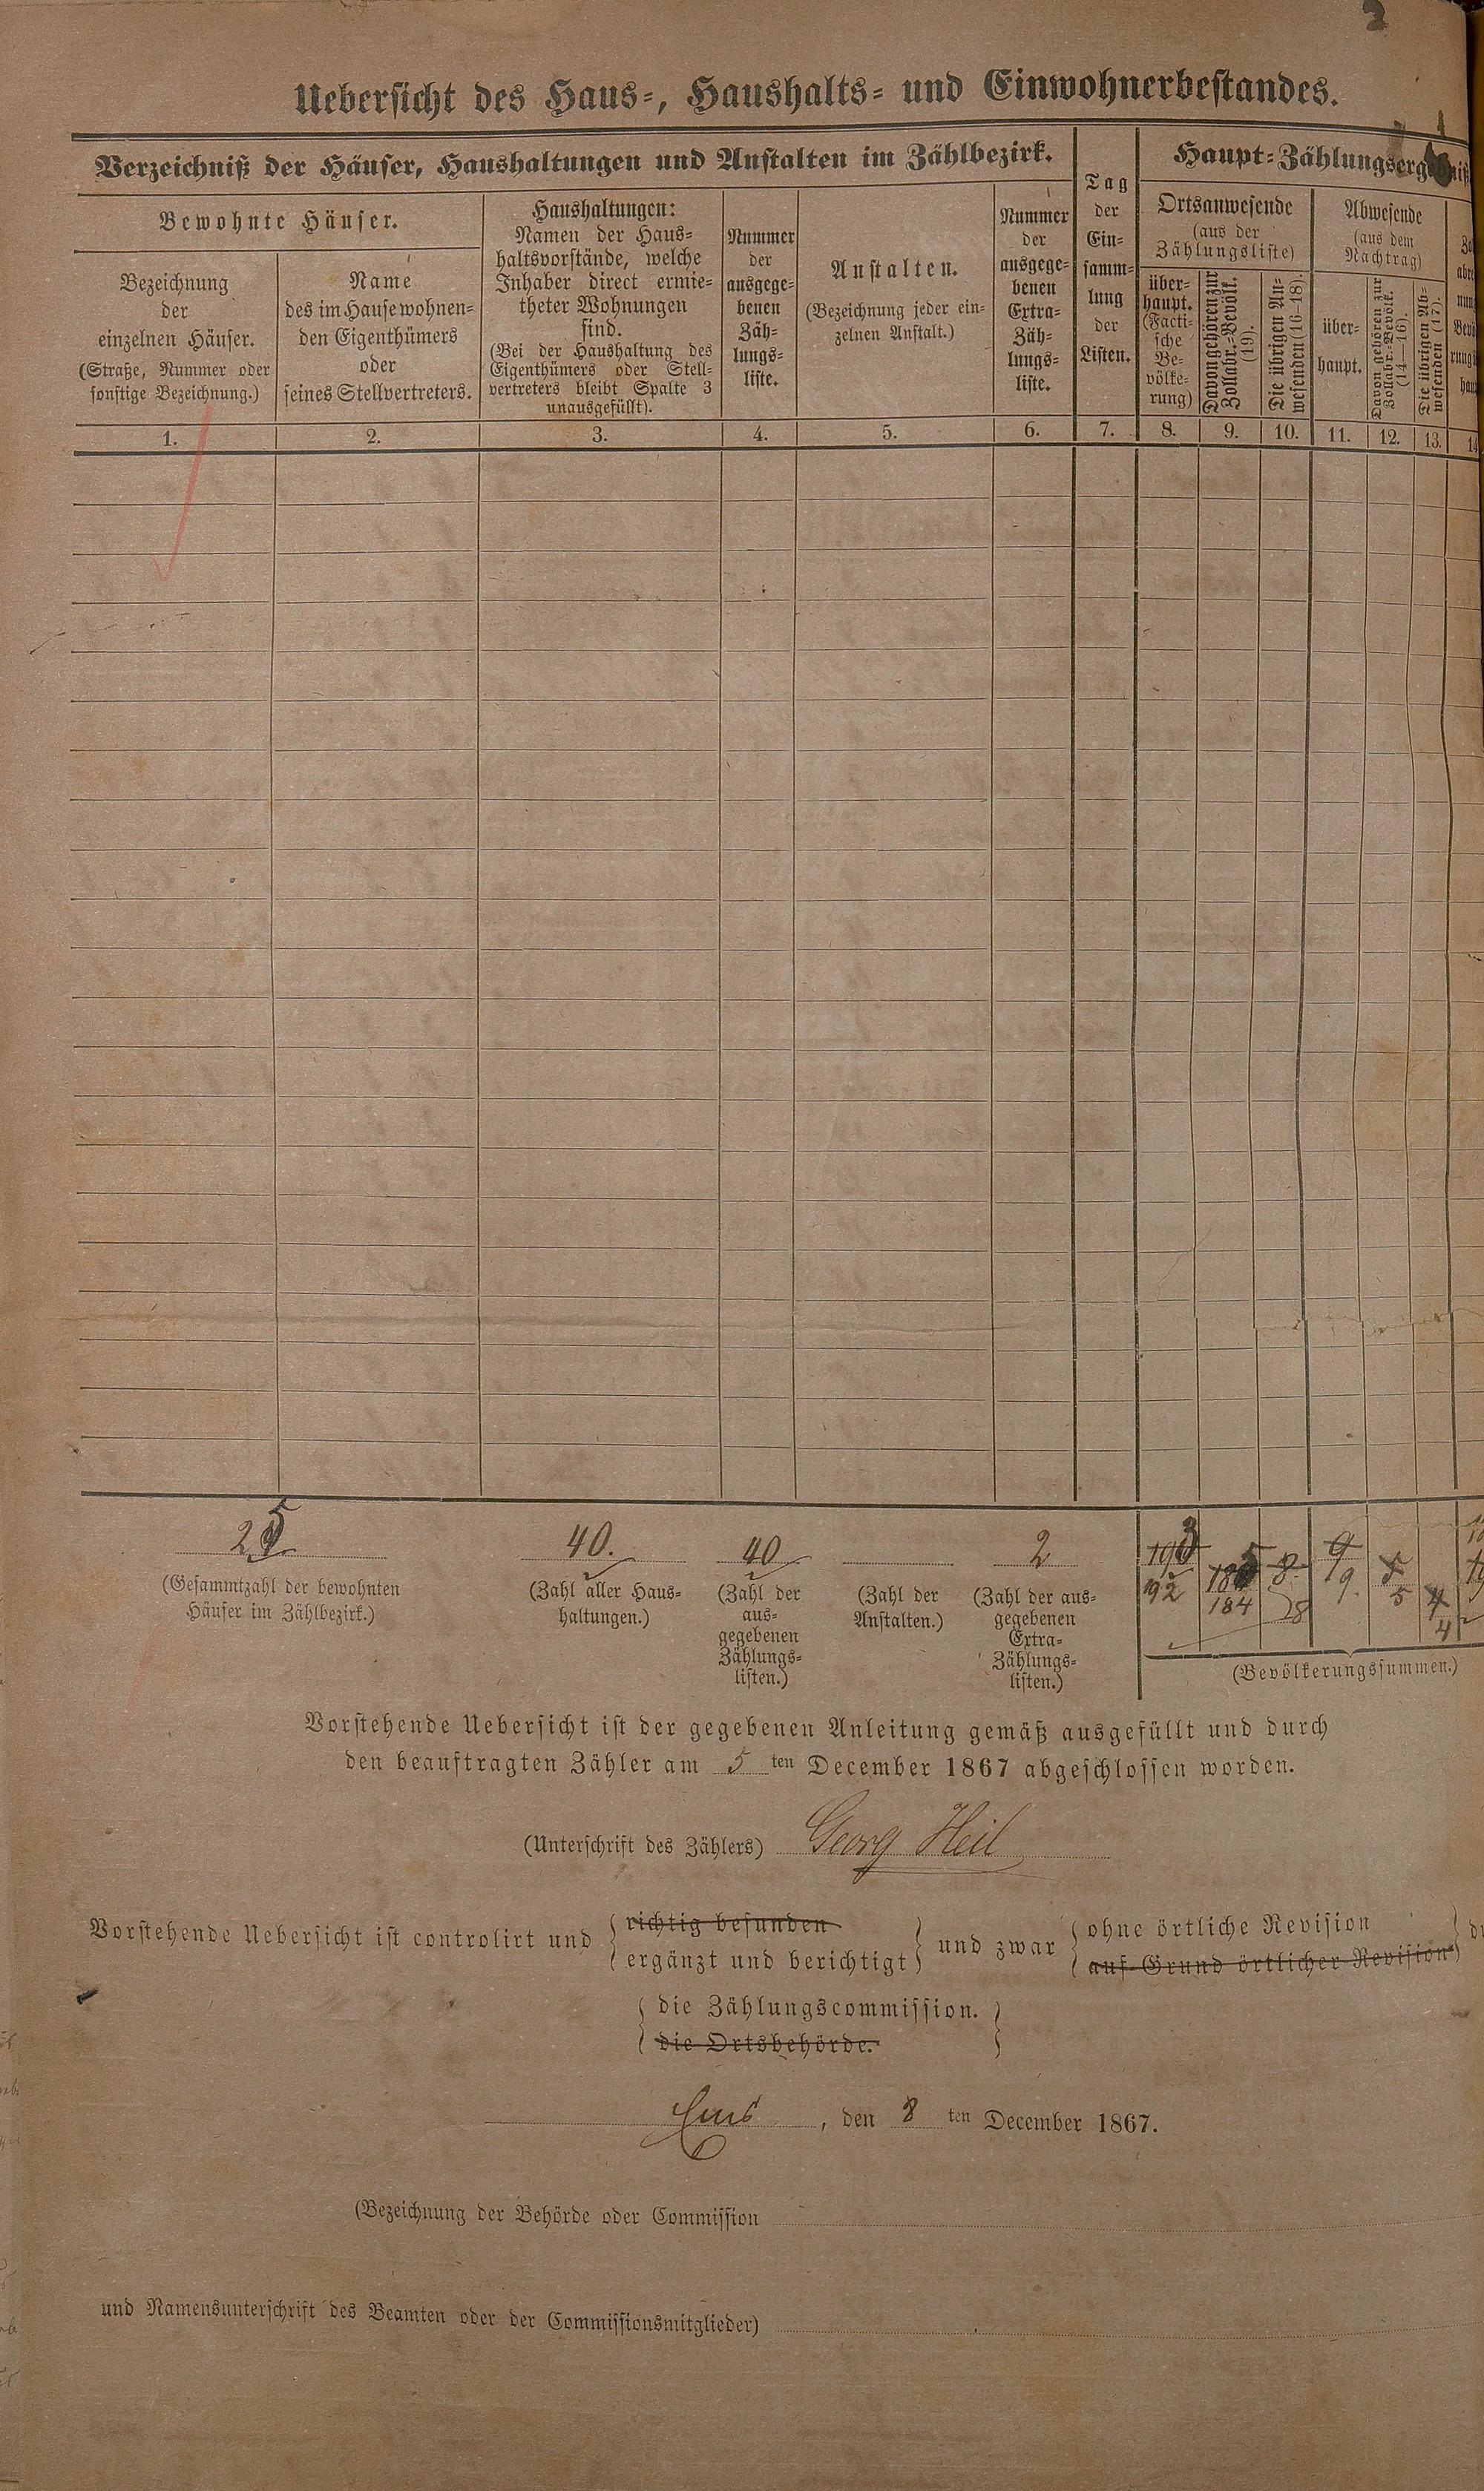 2
Uebersicht des Haus-, Haushalts- und Einwohnerbestandes.
Verzeichniß der Häuser, Haushaltungen und Anstalten im Zählbezirk.
Bewohnte Häuser.
Bezeichnung
der
einzelnen Häuser.
(Straße, Nummer oder
sonstige Bezeichnung.)
Name
des im Hause wohnen-
den Eigenthümers
oder
seines Stellvertreters.
Haushaltungen:
Namen der Haus-
haltsvorstände, welche
Inhaber direct ermie-
theter Wohnungen
sind.
(Bei der Haushaltung des
Eigenthümers oder Stell-
vertreters bleibt Spalte 3
unausgefüllt).
Nummer
der
ausgege-
benen
Zäh-
lungs-
liste.
Anstalten.
(Bezeichnung jeder ein-
zelnen Anstalt.)
Nummer
der
ausgege-
benen
Extra-
Zäh-
lungs-
liste.
Tag
der
Ein-
samm-
lung
der
Listen.
Haupt-Zählungserg
Ortsanwesende
(aus der
Zählungsliste)
über-
haupt.
(Facti-
sche
Be-
völke-
rung)
Davon gehören zur
Zollabr.-Bevölk.
(19).
Die übrigen An-
wesenden (16–18).
Abwesende
(aus dem
Nachtrag)
über-
haupt.
Davon gehören zur
Zollabr.-Bevölk.
(14–16).
Die übrigen Ab-
wesenden (17).
1. 2. 3. 4. 5. 6. 7. 8. 9. 10. 11. 12. 13. 14
25 40. 40 2
193 185 8 9 5 4
192 184 28 9. 5 4
(Gesammtzahl der bewohnten
Häuser im Zählbezirk.)
(Zahl aller Haus-
haltungen.)
(Zahl der
aus-
gegebenen
Zählungs-
listen.)
(Zahl der
Anstalten.)
(Zahl der aus-
gegebenen
Extra-
Zählungs-
listen.)
(Bevölkerungssummen.)
Vorstehende Uebersicht ist der gegebenen Anleitung gemäß ausgefüllt und durch
den beauftragten Zähler am 5 ten December 1867 abgeschlossen worden.
(Unterschrift des Zählers) Georg Heil
Vorstehende Uebersicht ist controlirt und { richtig befunden ergänzt und berichtigt } und zwar { ohne örtliche Revision auf Grund örtlicher Revision }
{ die Zählungscommission.
die Ortsbehörde. }
Ems, den 8 ten December 1867.
(Bezeichnung der Behörde oder Commission
und Namensunterschrift des Beamten oder der Commissionsmitglieder)